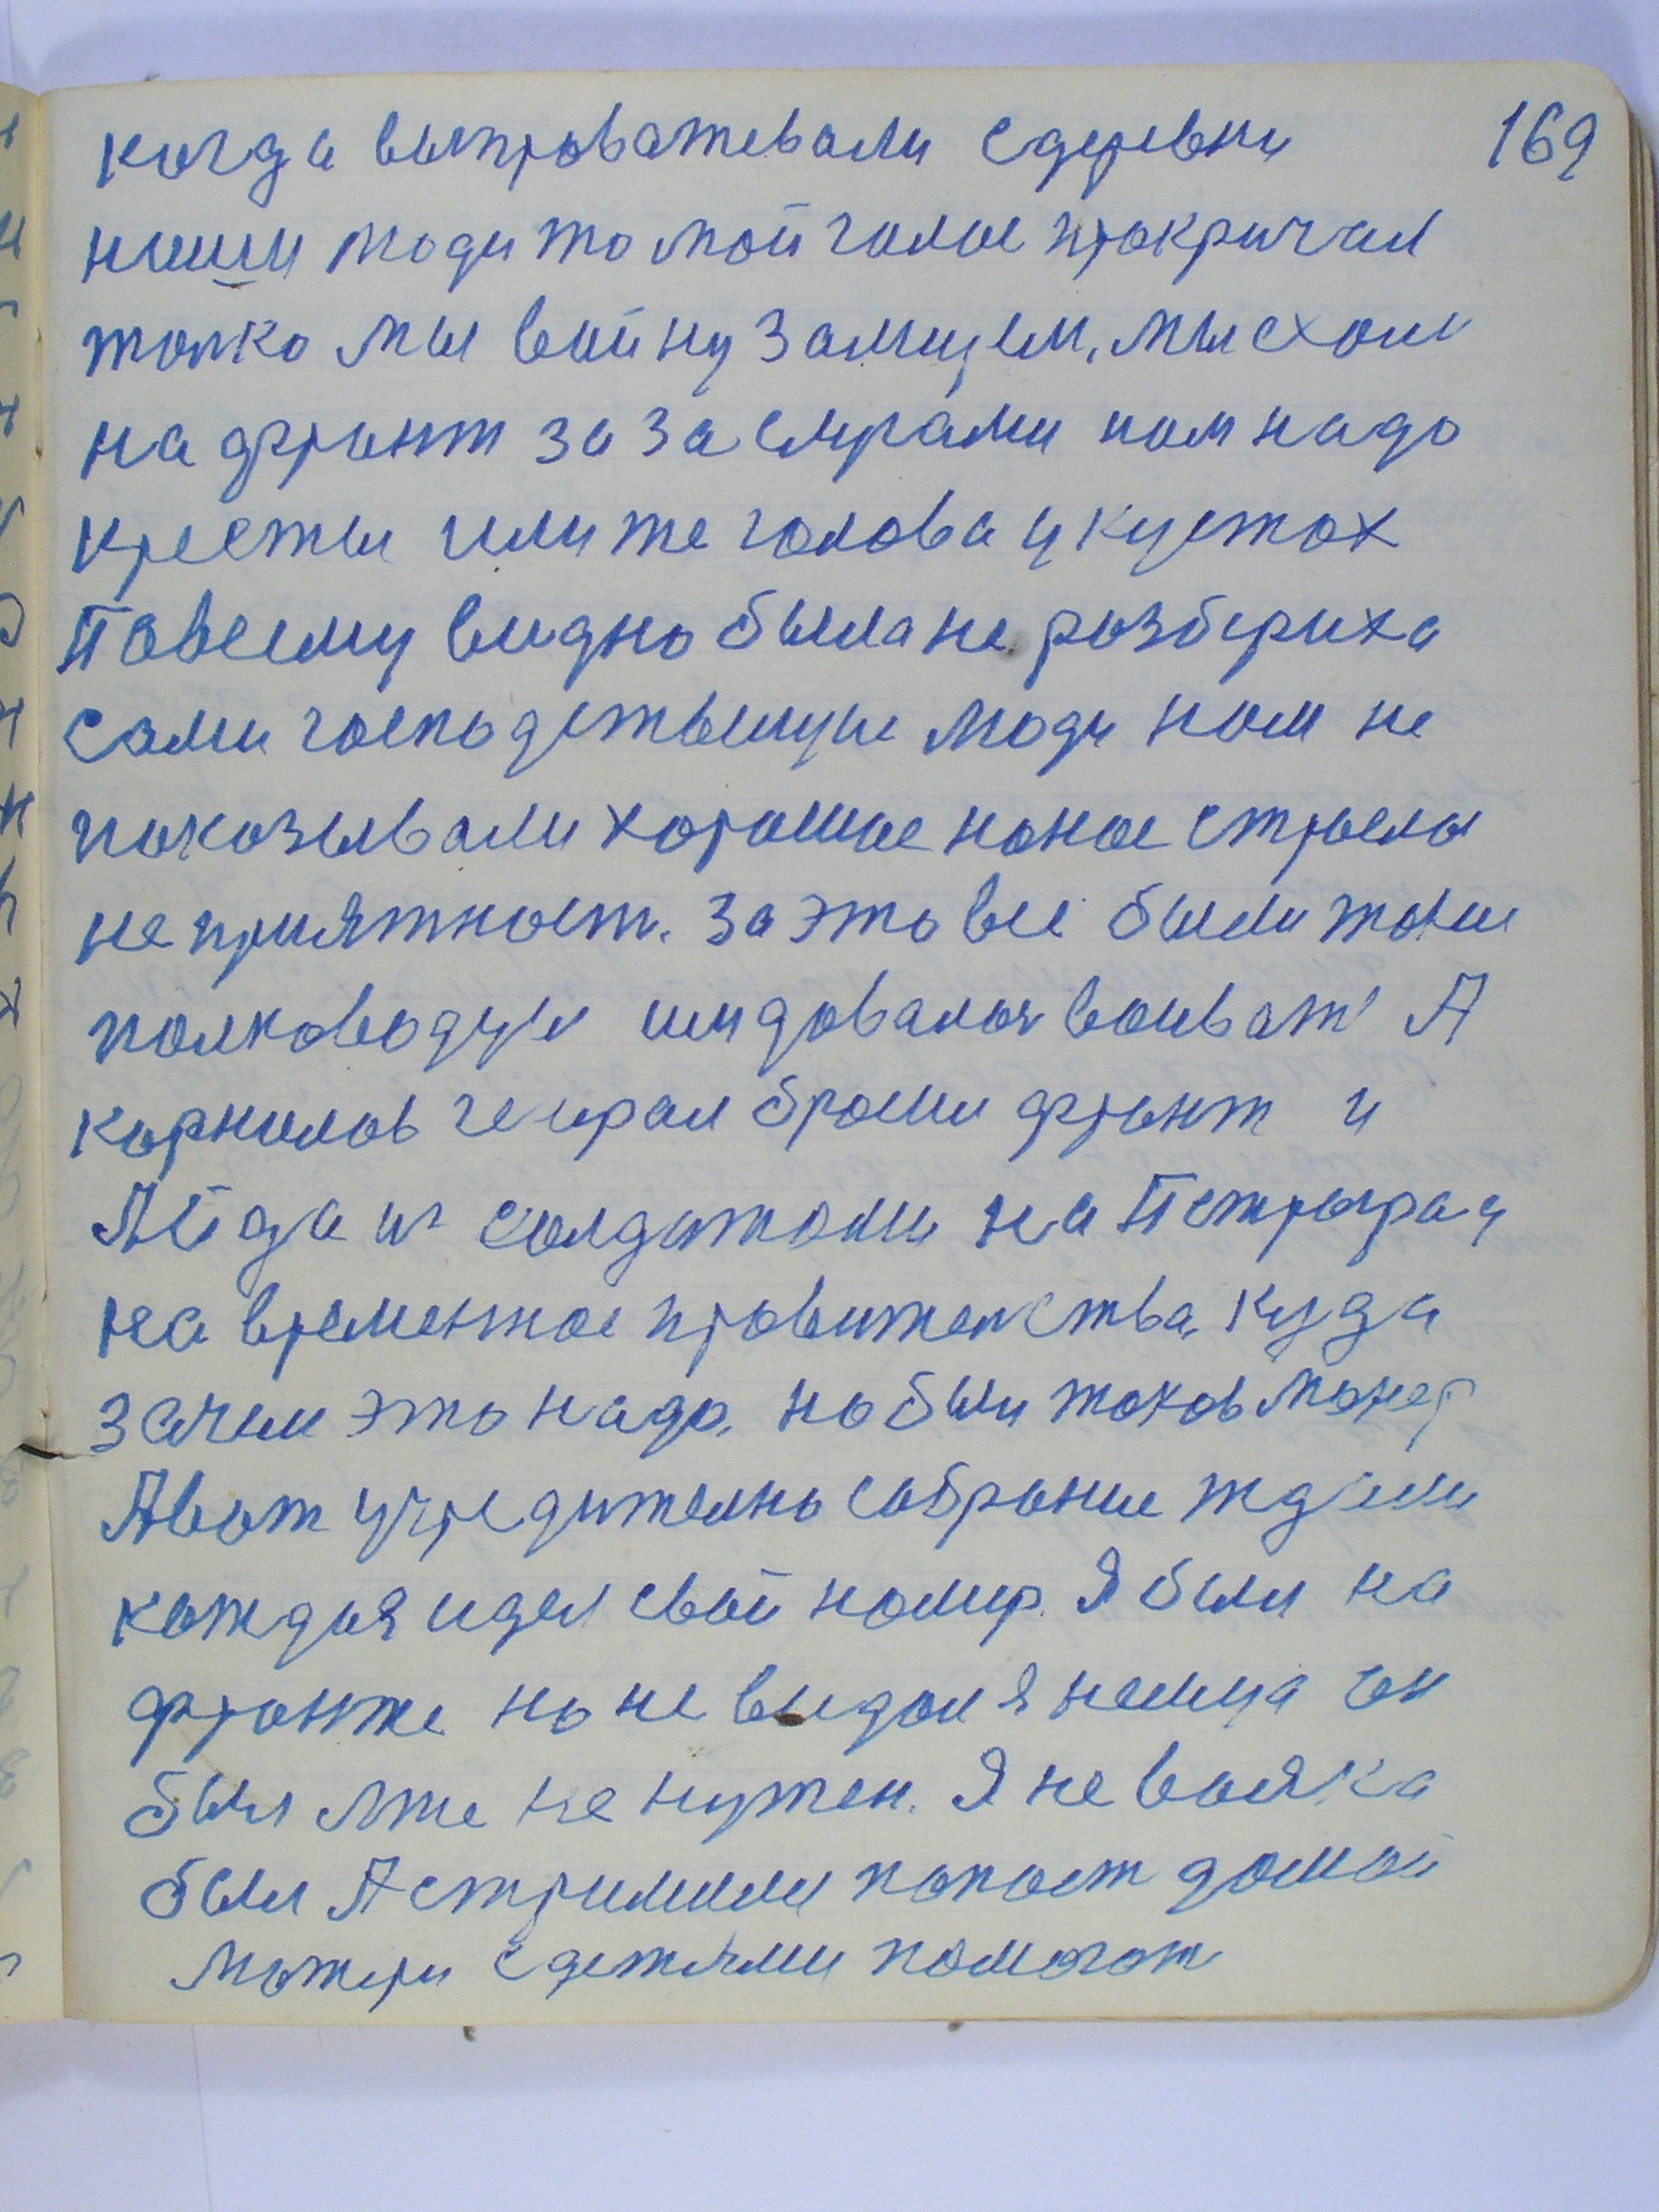 169
когда выпроваживали с деревни
наши люди то мой голос прокричал
толко мы войну замирем. мы ехали
на фронт за за смрами нам надо
кресты или же голова у кустох
Па всему видно была не розбериха
сами господствующие люди нам не
показывали хорошое но ное строела
не приятност. За это все были такие
полководцы воиват А
Корнилов генерал броси фронт и
Айда и солдатами на Петроград
на временное провителства, куда
зачем это надо. но был таков манер
А вот учредително собрание ждали
каждыя идел свой номир. Я был на
фронте но не видал я немца он
был мне не нужен. Я не вояка
был А стримилси попаст домой
матери с детями помогат